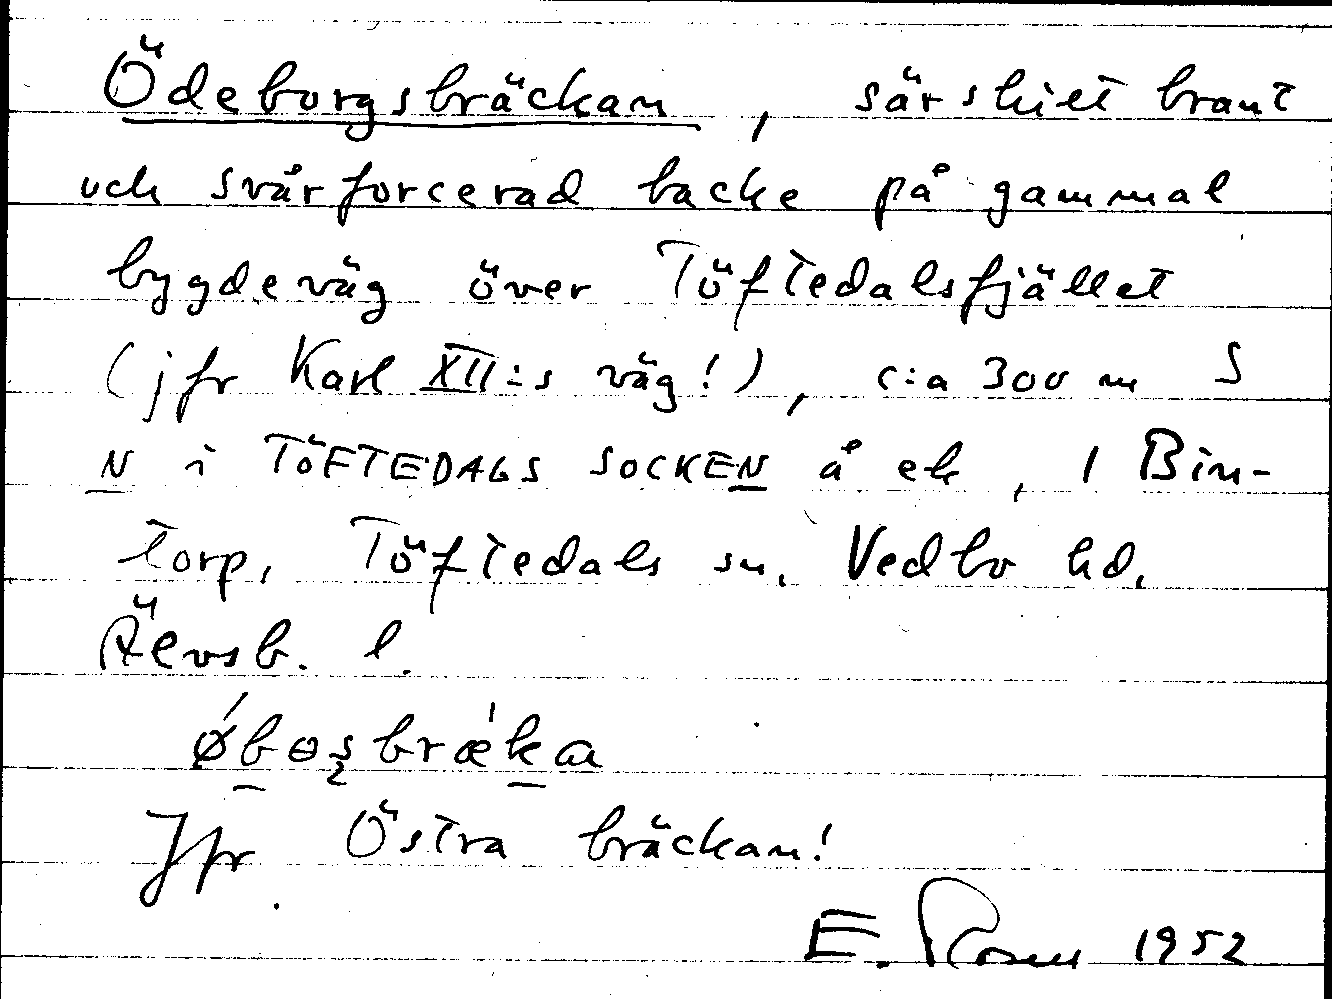 Ödeborgsbräckan, särskilt brant
och svårforcerad backe på gammal
bygdeväg över Töftedalsfjället
(jfr Karl XII:s väg!), c:a 300 m S
N i TÖFTEDALS SOCKEN å ek, 1 Bin-
torp, Töftedals sn. Vedbo hd.
Älvsb. l.
ǿbosbræ'ka
Jfr Östra bräckan!
E. Rosen 1952